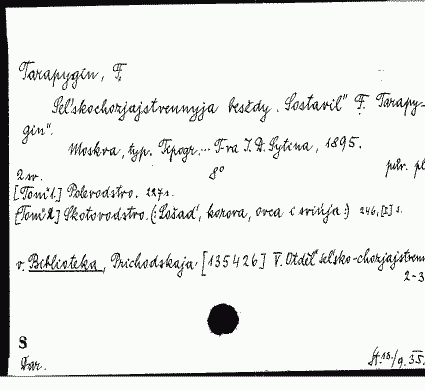 Tarapygin, F.
Sel'skochozjajstvennyja besědy. Sostavil" F. Tarapy-
gin".
Moskva, typ. Tipogr... T-va I. D. Sytina, 1895.
2 sv. 8° põlv. pl
[Tom" 1.] Polevodstvo. 227 s.
[Tom" 2.] Skotovodstvo. (: Lošad', korova, ovca i svin'ja :) 246, [2] s.
v. Biblioteka, Prichodskaja [135426] V. Otděl" sel'sko-chozjajstvenn
2-3
S
Dar.